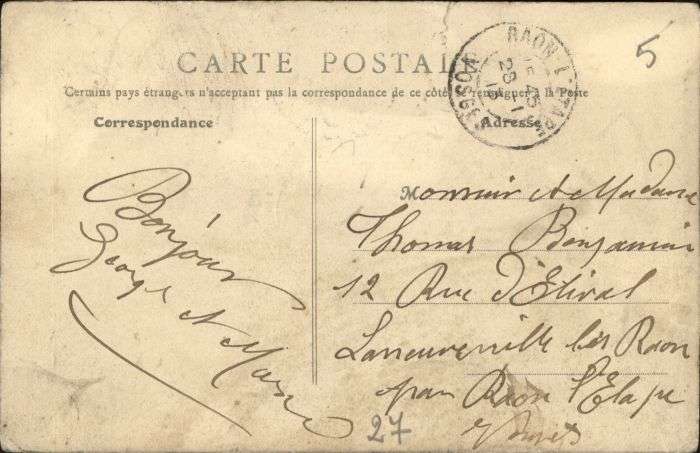 CARTE POSTALE
Certains pays étrangers n'acceptent pas la correspondance de ce côté se renseigner à la Poste
Correspondance
Adresse
5
RAON L'ETAPE
VOSGES
Bonjour
George et Marie
Monsieur et Madame
Thomas Benjamin
12 Rue d'Etival
Laneuveville les Raon
par Raon l'Etape
Vosges
27